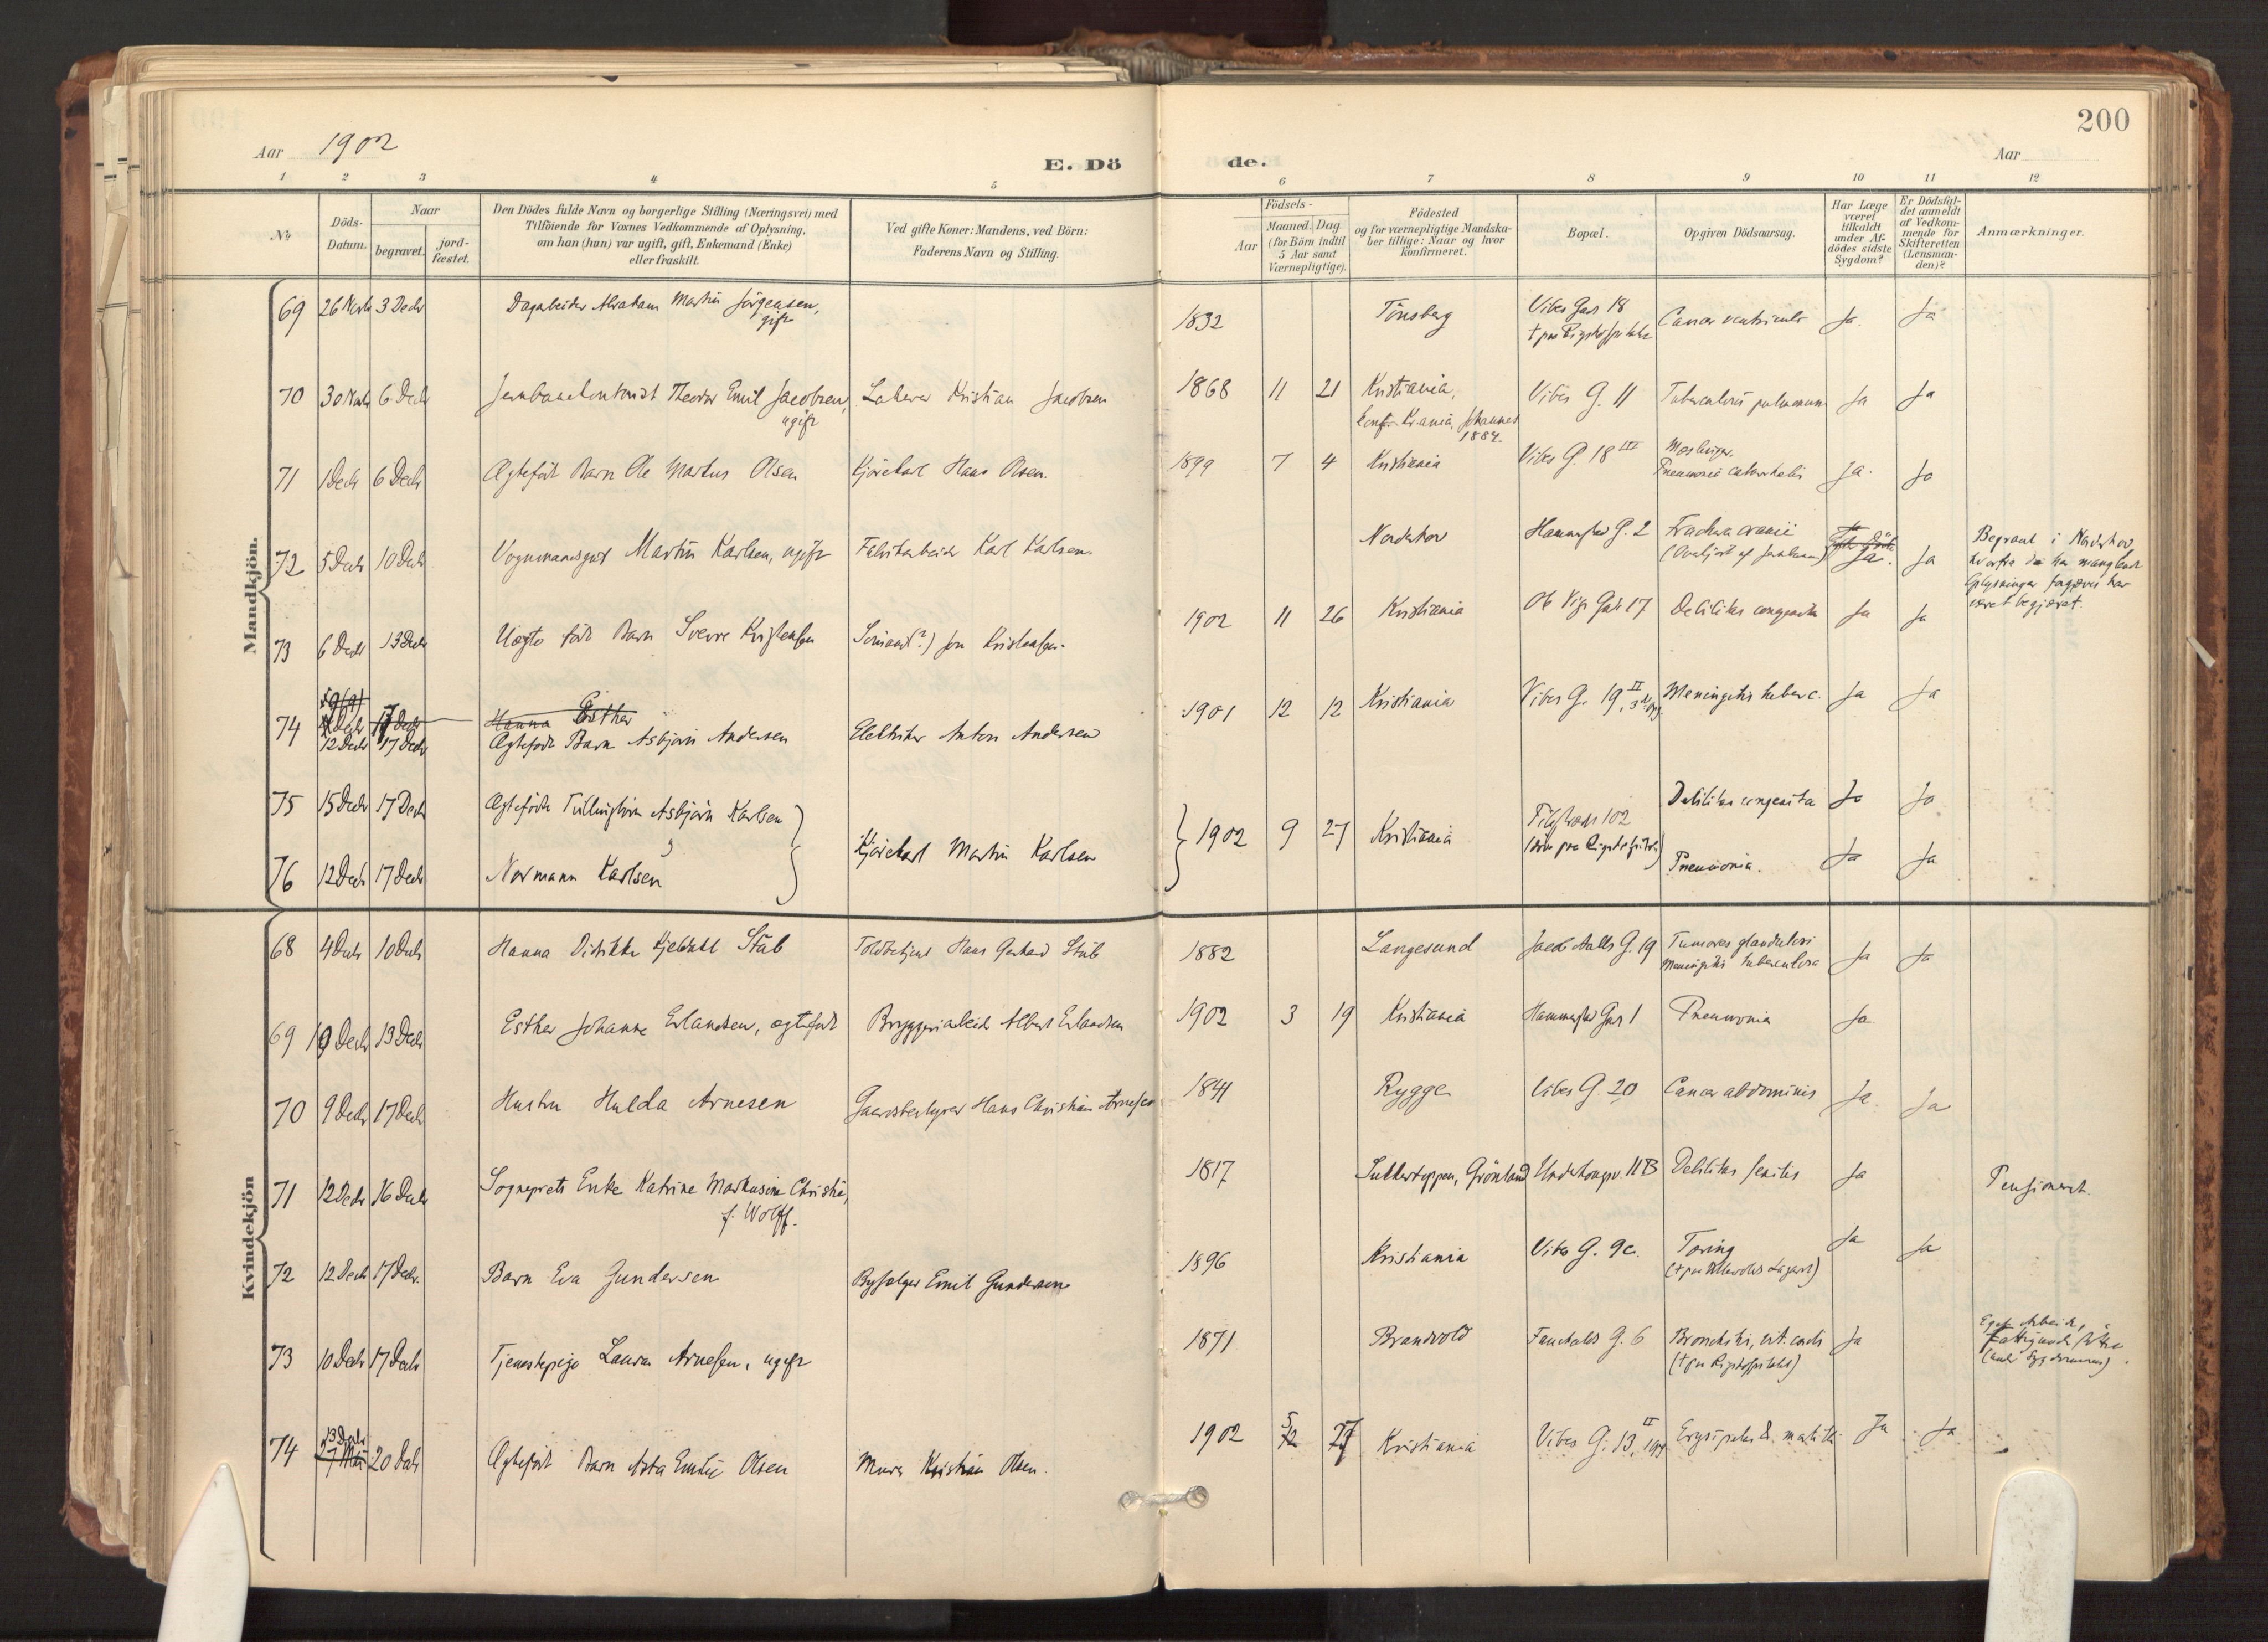 200
Aar 1902
E. Dö
de.
Aar
1 2 3 4 5 6 7 8 9 10 11 12
No
Döds-Datum.
Naar
begravet.
jord-fæstet.
Den Dödes fulde Navn og borgerlige Stilling (Næringsvei) med
Tilföiende for Voxnes Vedkommende af Oplysning,
om han (hun) var ugift, gift, Enkemand (Enke)
eller fraskilt.
Ved gifte Koner: Mandens, ved Börn:
Faderens Navn og Stilling.
Födsels-
Aar
Maaned. Dag.
(for Börn indtil
5 Aar samt
Værnepligtige).
Födested
og for værnepligtige Mandska-
ber tillige: Naar og hvor
konfirmeret.
Bopæl.
Opgiven Dödsaarsag.
Har Læge
været
tilkaldt
under Af-
dödes sidste
Sygdom?
Er Dödsfal-
det anmeldt
af Vedkom-
mende for
Skifteretten
(Lensman-
den)?
Anmærkninger.
Mandkjön.
69 26 Novbr 3 Decbr Dagarbeider Abraham Martin Jörgensen, 1832 Tönsberg Vibes Gade 18 Cancer ventriculi Ja. Ja
gift † paa Rigshospitalet
70 30 Novbr 6 Decbr Theodor Emil Jacobsen, Kristian Jacobsen 1868 11 21 Kristiania, Vibes G. 11 Tuberculosis pulmonum Ja Ja
ugift konf. Kr.ania, Johannes
1884.
71 1 Decbr 6 Decbr Ægtefödt Barn Ole Markus Olsen Kjörekarl Hans Olsen. 1899 7 4 Kristiania Vibes G. 18 III Mæslinger. Ja. Ja
Pneumonia catarrhalis
72 5 Decbr 10 Decbr Vognmandsgut Martin Karlsen, ugift Fabrikarbeider Karl Karlsen. Norderhov Hammersta G. 2 Fractura cranii Ja. Ja Begravet i Norderhov,
hvorfra de her manglende
Oplysninger forgjæves har
været begjæret.
73 6 Decbr 13 Decbr Uægte födt Barn Sverre Kristensen Sömand(?) Kristensen. 1902 11 26 Kristiania 17 Debilitas congenita Ja Ja
74 17 Decbr Hanna Esther
12 Decbr 17 Decbr Ægtefödt Barn Asbjörn Andersen Elektriker Anton Andersen 1901 12 12 Kristiania Vibes G. 19 II Meningitis tuberc. Ja Ja
75 15 Decbr 17 Decbr Ægtefödte Tvillingbörn Asbjörn Karlsen Kjörekarl Martin Karlsen 1902 9 27 Kristiania 102 Debilitas congenita Ja Ja
76 12 Decbr 17 Decbr Normann Karlsen Pneumonia. Ja Ja
Kvindekjön
68 4 Decbr 10 Decbr Hanna Didrikke Stub Toldbetjent Hans Gerhard Stub 1882 Langesund Jacob Aalls G. 19 Tumores glandulosi Ja Ja
Meningitis tuberculosa
69 10 Decbr 13 Decbr Esther Johanne Erlandsen, ægtefödt Bryggeriarbeider Albert Erlandsen 1902 3 19 Kristiania Hammersta Gade 1 Pneumonia Ja
70 9 Decbr 17 Decbr Hustru Hulda Arnesen Gaardsbestyrer Hans Christian Arnesen 1841 Rygge Vibes G. 20 Cancer abdominis Ja. Ja
71 12 Decbr 16 Decbr Sogneprests Enke Katrine Markusine Christie, 1817 Sukkertoppen, Grönland Underhaugsv. 11B Debilitas senilis Ja Pensioneret.
f. Wolff.
72 12 Decbr 17 Decbr. Barn Eva Gundersen Bysælger Emil Gundersen 1896 Kristiania Vibes G. 9c. Tæring Ja Ja
73 10 Decbr 17 Decbr Tjenestepige Laura Arnesen, ugift 1871 Brandvold Fauchalds G. 6 Bronchitis, vit. cordis Ja Eget Arbeide,
(† paa Rigshospitalet)
74 13 Decbr 20 Decbr Ægtefödt Barn Asta Emilie Olsen Murer Kristian Olsen. 1902 5 27 Kristiania Vibes G. 13 II Ja Ja